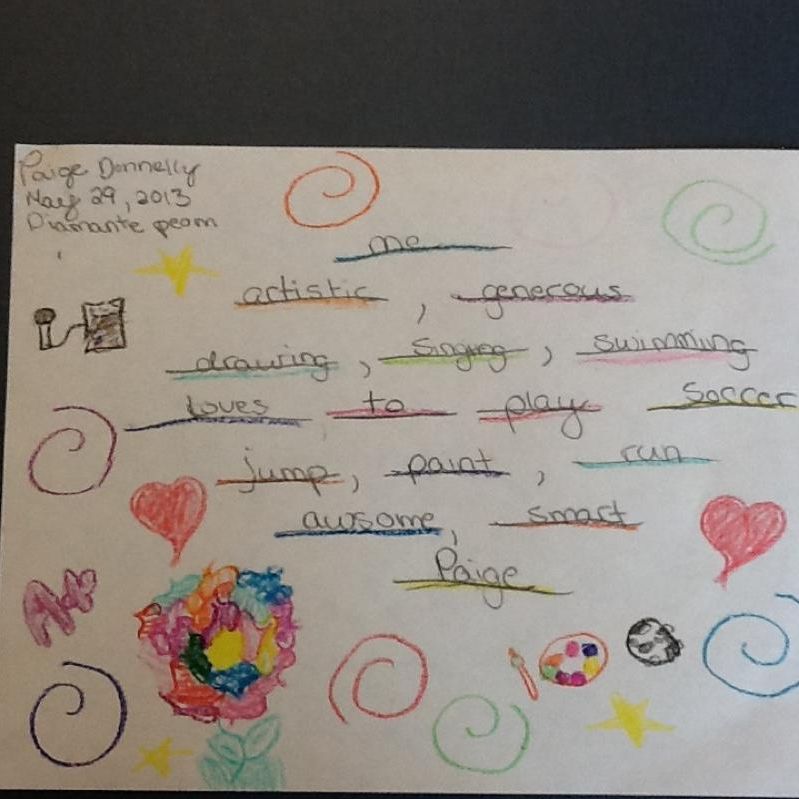 Paige Donnelly
May 29, 2013
Diamante peom
me
artistic, generous
drawing, Singing, swimming
loves to play Soccer
jump, paint, run
awsome, smart
Paige
Art